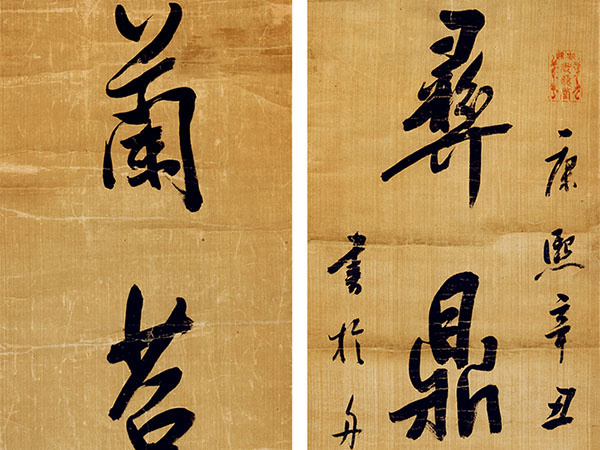 康熙辛丑
彝鼎
書於舟
蘭